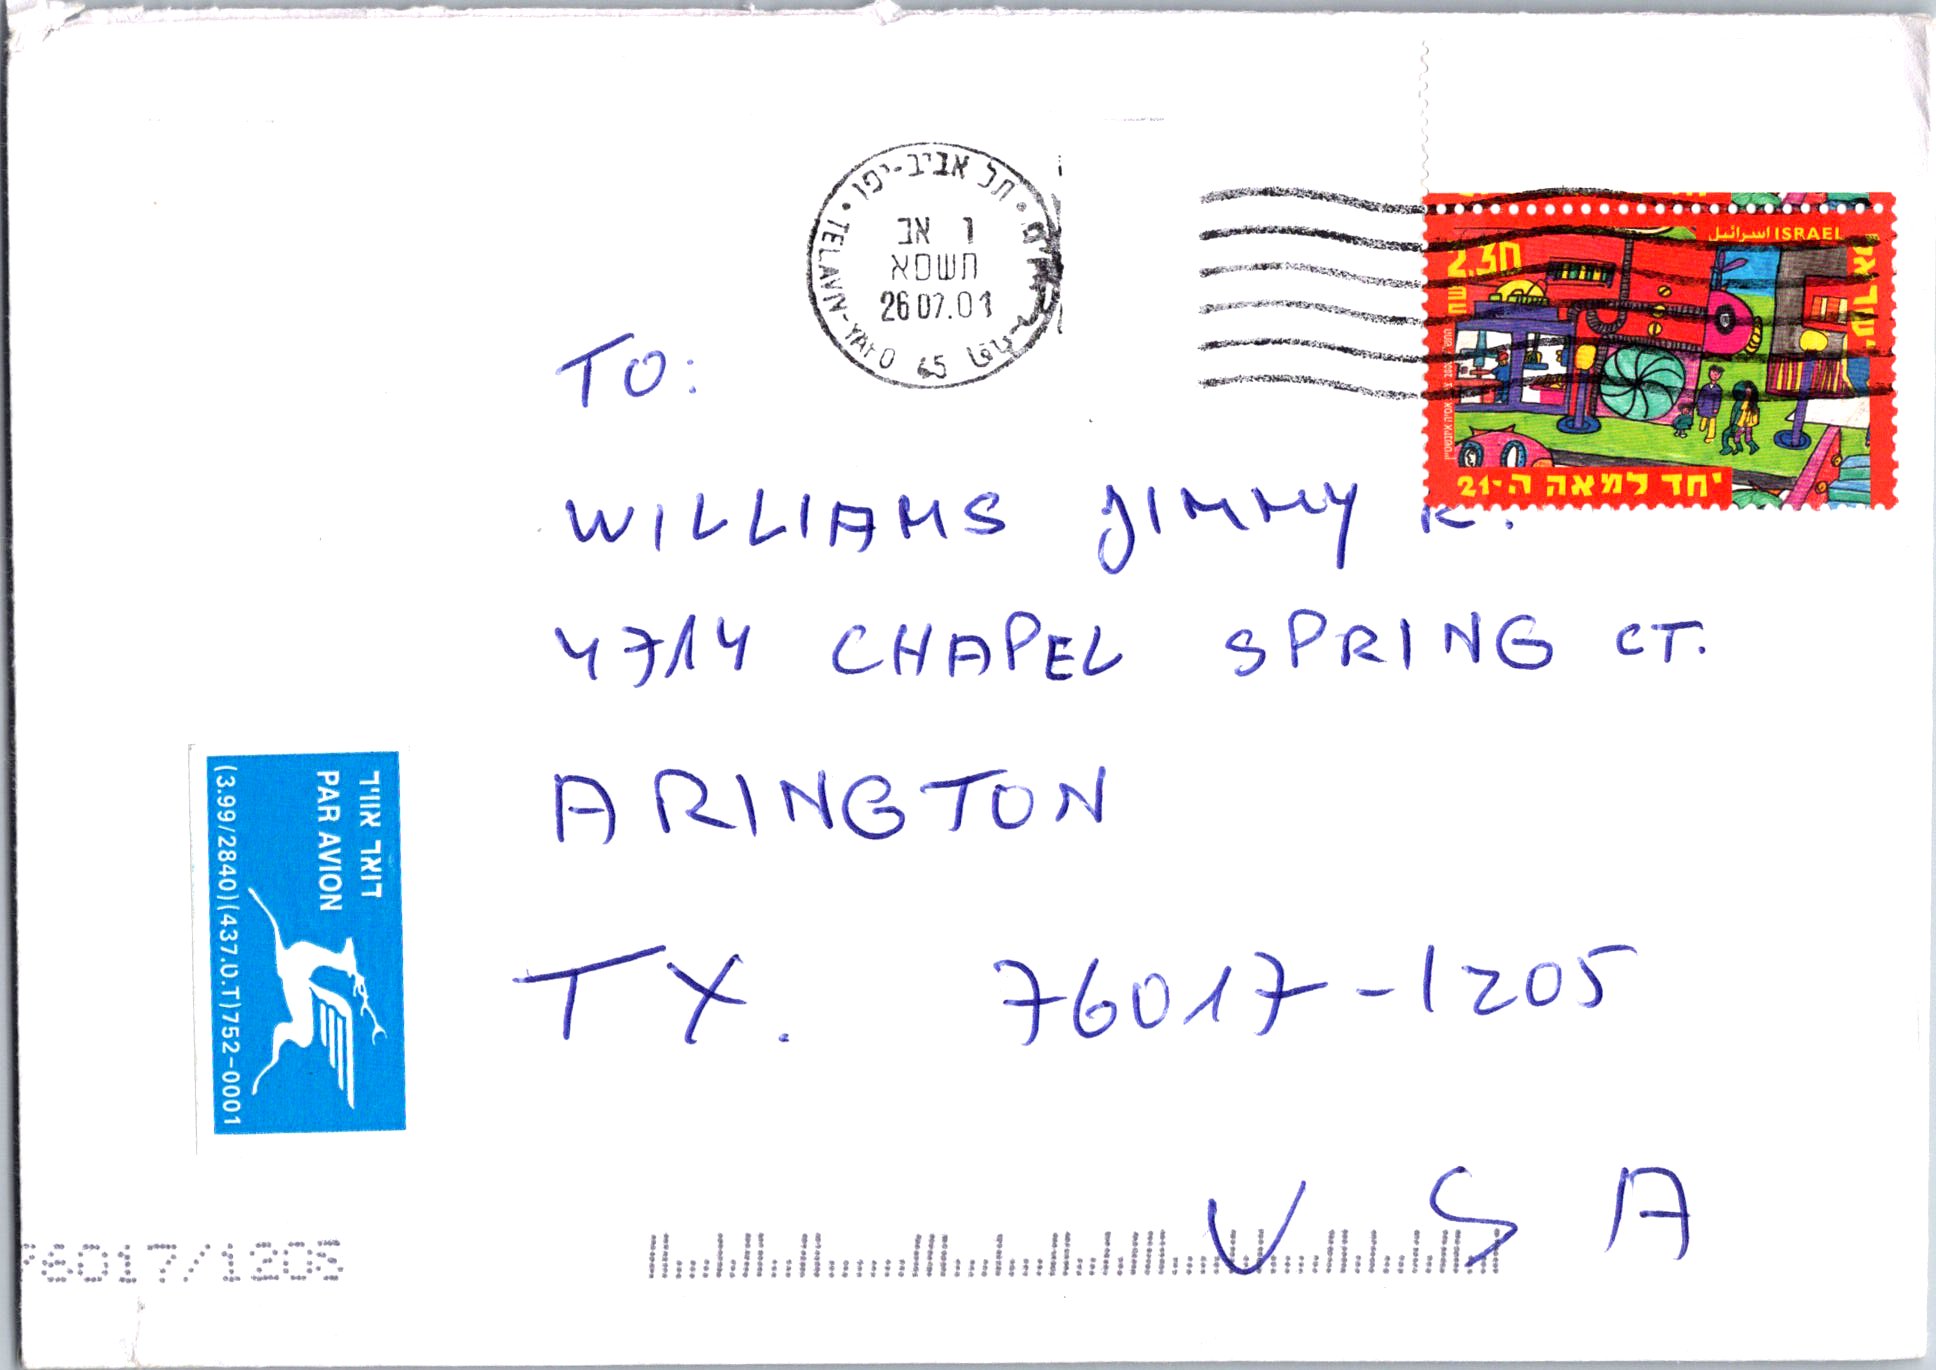 תל אביב-יפו
1 אב
תשסא
26 07.01
TEL AVIV-YAFO
ISRAEL اسرائيل
2.30
יחד למאה ה-21
TO:
WILLIAMS JIMMY R.
4714 CHAPEL SPRING CT.
ARINGTON
TX. 76017-1205
USA
דואר אוויר
PAR AVION
(3.99/2840)(437.0.T)752-0001